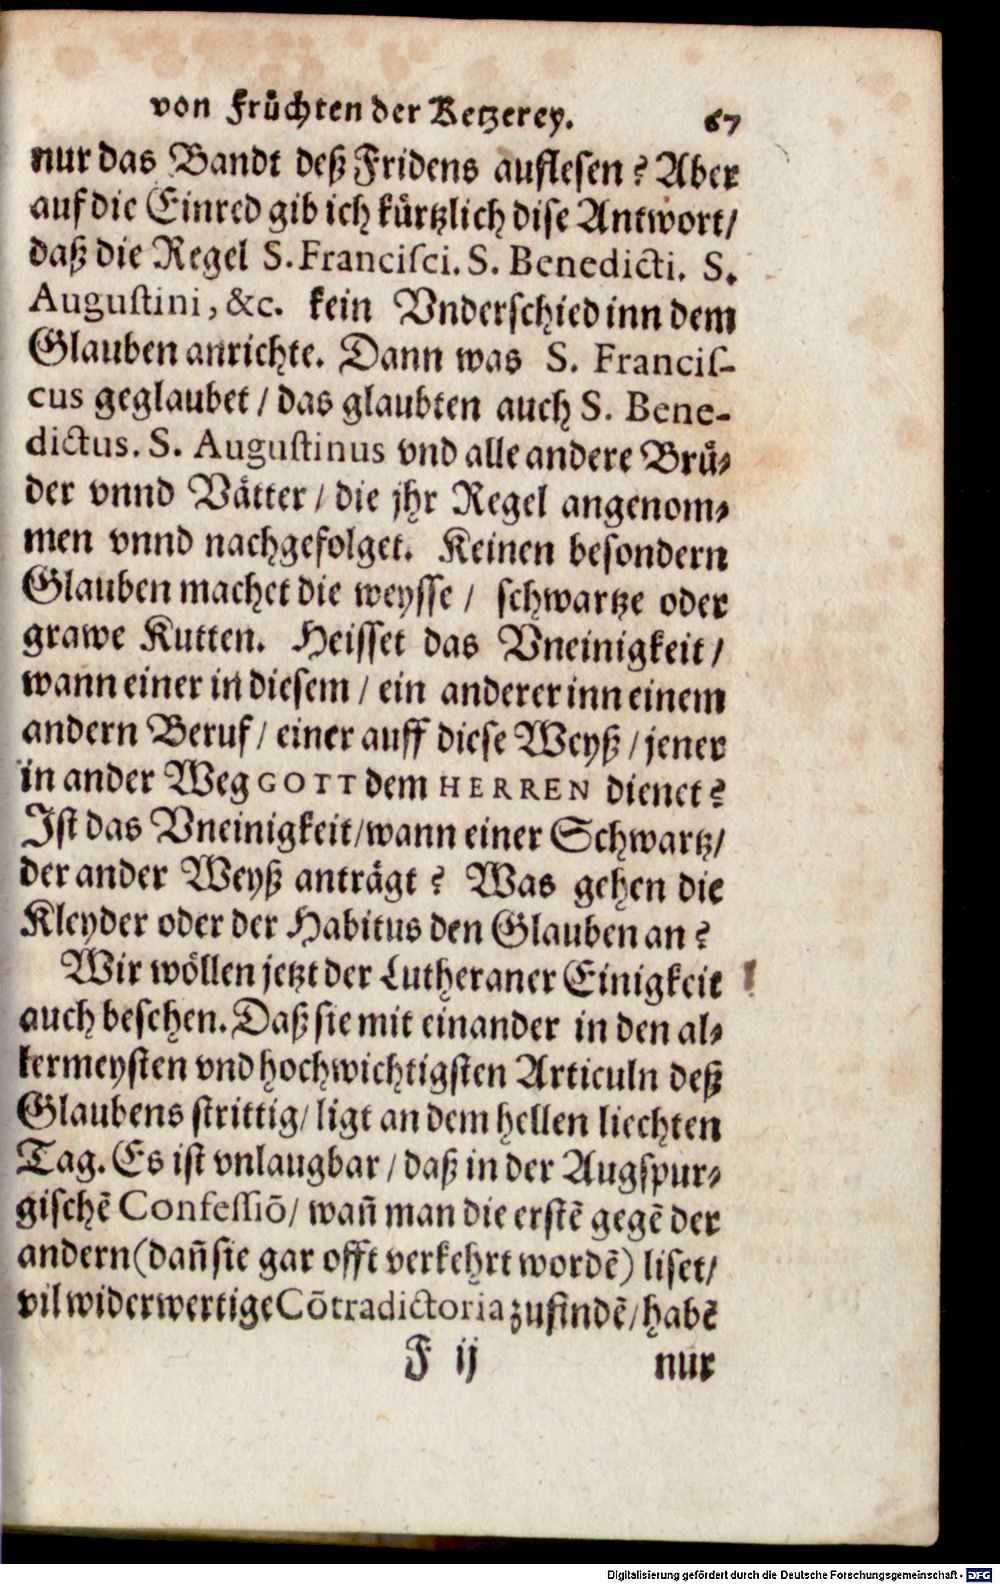 von Früchten der Ketzerey. 67
nur das Bandt deß Fridens auflesen? Aber
auf die Einred gib ich kürtzlich dise Antwort/
daß die Regel S. Francisci. S. Benedicti. S.
Augustini, &c. kein Vnderschied inn dem
Glauben anrichte. Dann was S. Francis-
cus geglaubet / das glaubten auch S. Bene-
dictus. S. Augustinus vnd alle andere Brü-
der vnnd Vätter / die jhr Regel angenom-
men vnnd nachgefolget. Keinen besondern
Glauben machet die weysse / schwartze oder
grawe Kutten. Heisset das Vneinigkeit /
wann einer in diesem / ein anderer inn einem
andern Beruf / einer auff diese Weyß / jener
in ander Weg GOTT dem HERREN dienet?
Ist das Vneinigkeit/wann einer Schwartz/
der ander Weyß anträgt? Was gehen die
Kleyder oder der Habitus den Glauben an?
Wir wöllen jetzt der Lutheraner Einigkeit
auch besehen. Daß sie mit einander in den al-
lermeysten vnd hochwichtigsten Articuln deß
Glaubens strittig/ ligt an dem hellen liechten
Tag. Es ist vnlaugbar / daß in der Augspur-
gischē Confessiō/ wañ man die erstē gegē der
andern (dañ sie gar offt verkehrt wordē) liset/
vil widerwertige Cōtradictoria zufindē/habē
F ij nur
Digitalisierung gefördert durch die Deutsche Forschungsgemeinschaft - DFG